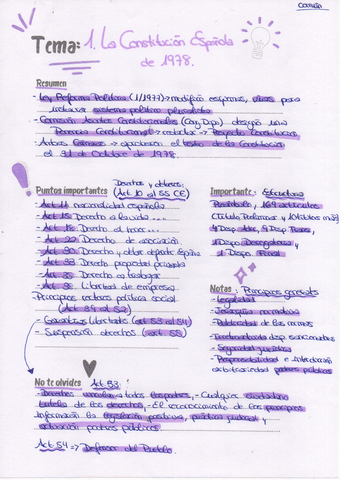 Común
Tema: 1. La Constitución Española
de 1978.
Resumen
- Ley Reforma Política (1/1977) → modificó para
instaurar sistema político pluralista.
- Comisión Asuntos Constitucionales (Cong. Dipu) designó una
Ponencia Constitucional → redactar → Proyecto Constitución.
- Ambas Cámaras → aprobaron el texto de la Constitución
el 31 de Octubre de 1978.
Puntos importantes Derechos y deberes:
(Art. 10 al 55 CE)
- Art. 11 nacionalidad española
- Art. 15 Derecho a la vida ...
- Art. 18 Derecho al honor ...
- Art. 22 Derecho de asociación
- Art. 30 Derecho y deber defender España
- Art. 33 Derecho propiedad privada
- Art. 35 Derecho al trabajo
- Art. 38 Libertad de empresa
- Principios rectores política social
(Art. 39 al 52)
- Garantías libertades (art. 53 al 54)
- Suspensión derechos (art. 55)
Importante: Estructura
Preámbulo, 169 artículos
(Título Preliminar y 10 títulos más)
4 Disp. Adic, 9 Disp. Trans,
1 Dispo. Derogatoria y
1 Dispo. Final
Notas: Principios generales
- Legalidad
- Jerarquía normativa
- Publicidad de las normas
- Irretroactividad disp. sancionadoras
- Seguridad jurídica
- Responsabilidad e interdicción
arbitrariedad poderes públicos
No te olvides Art. 53:
- Derechos vinculan a todos los poderes, - Cualquier ciudadano
tutela de los derechos, - El reconocimiento de los principios
informarán la legislación positiva, práctica judicial y
actuación poderes públicos.
Art. 54 => Defensor del Pueblo.